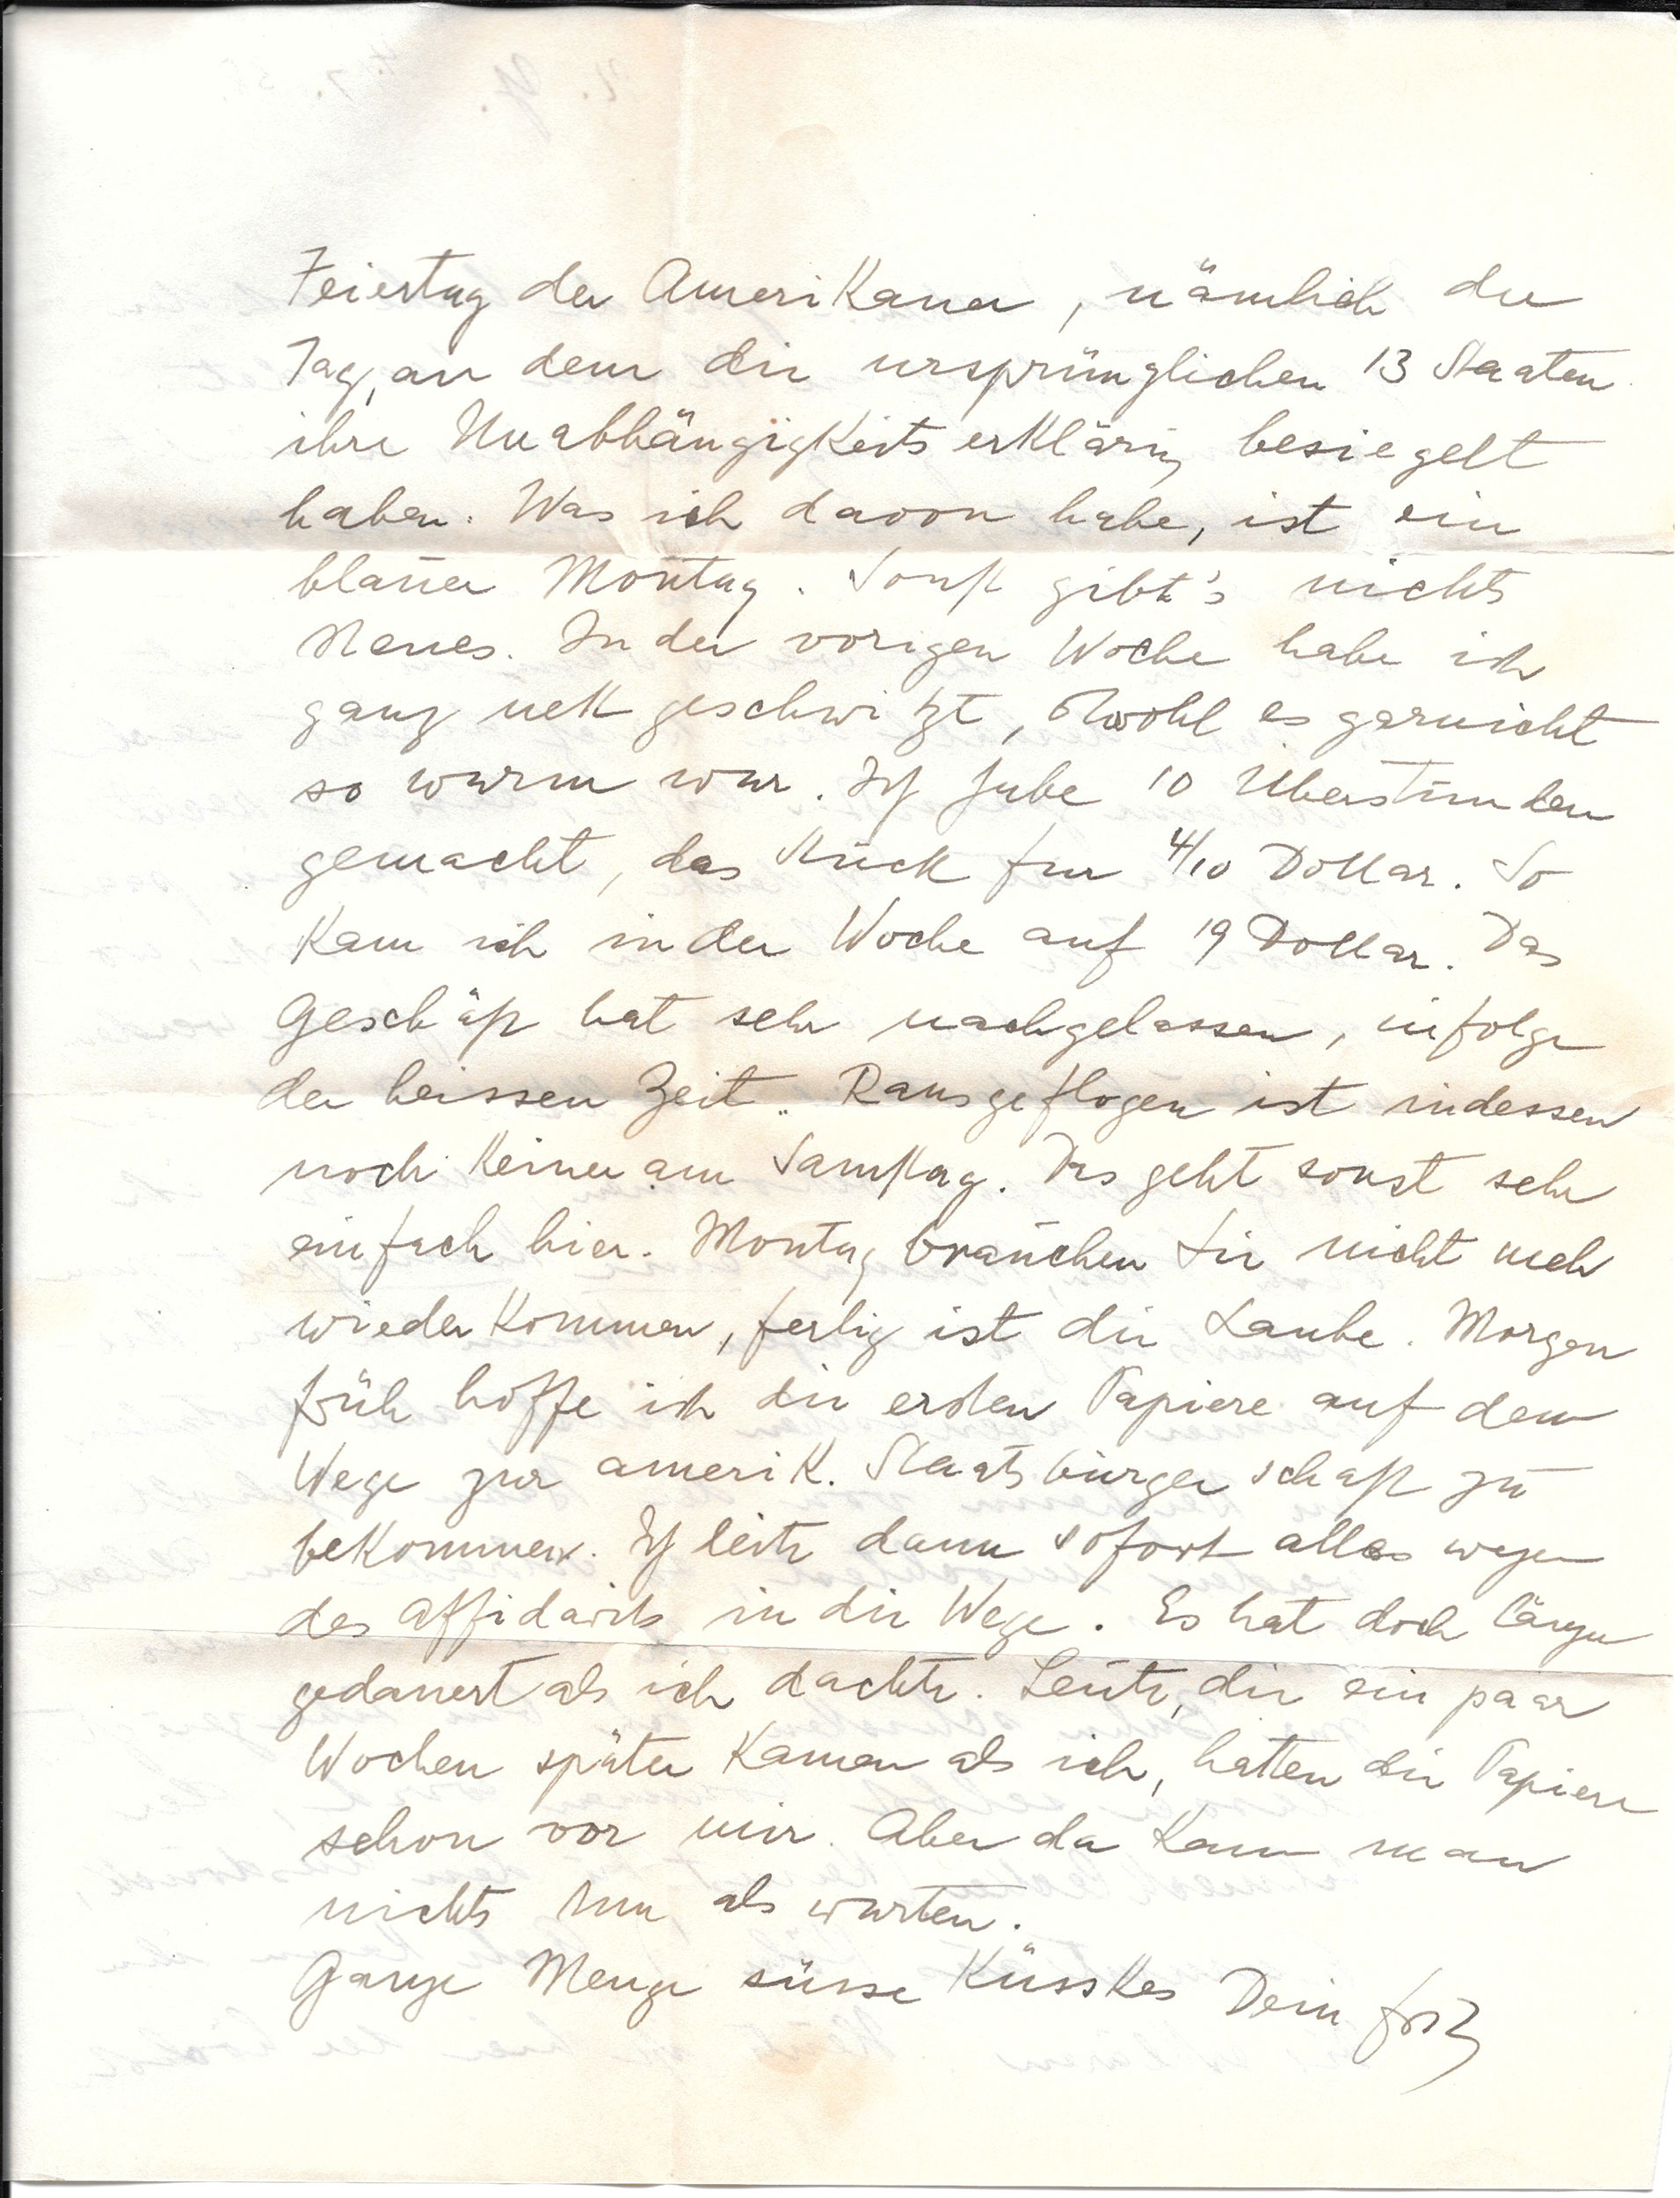 Feiertag der Amerikaner, nämlich der
Tag, an dem die ursprünglichen 13 Staaten
ihre Unabhängigkeitserklärung besiegelt
haben. Was ich davon habe, ist ein
blauer Montag. Sonst gibt's nichts
Neues. In der vorigen Woche habe ich
ganz nett geschwitzt, obwohl es garnicht
so warm war. Ich habe 10 Überstunden
gemacht, das Stück für 4/10 Dollar. So
kam ich in der Woche auf 19 Dollar. Das
Geschäft hat sehr nachgelassen, infolge
der heissen Zeit. Rausgeflogen ist indessen
noch keiner am Samstag. Das geht sonst sehr
einfach hier. Montag brauchen Sie nicht mehr
wieder kommen, fertig ist die Laube. Morgen
früh hoffe ich die ersten Papiere auf dem
Wege zur amerik. Staatsbürgerschaft zu
bekommen. Ich leite dann sofort alles wegen
des Affidavits in die Wege. Es hat doch länger
gedauert als ich dachte. Leute, die ein paar
Wochen später kamen als ich, hatten die Papiere
schon vor mir. Aber da kann man
nichts tun als warten.
Ganze Menge süsse Küsskes Dein